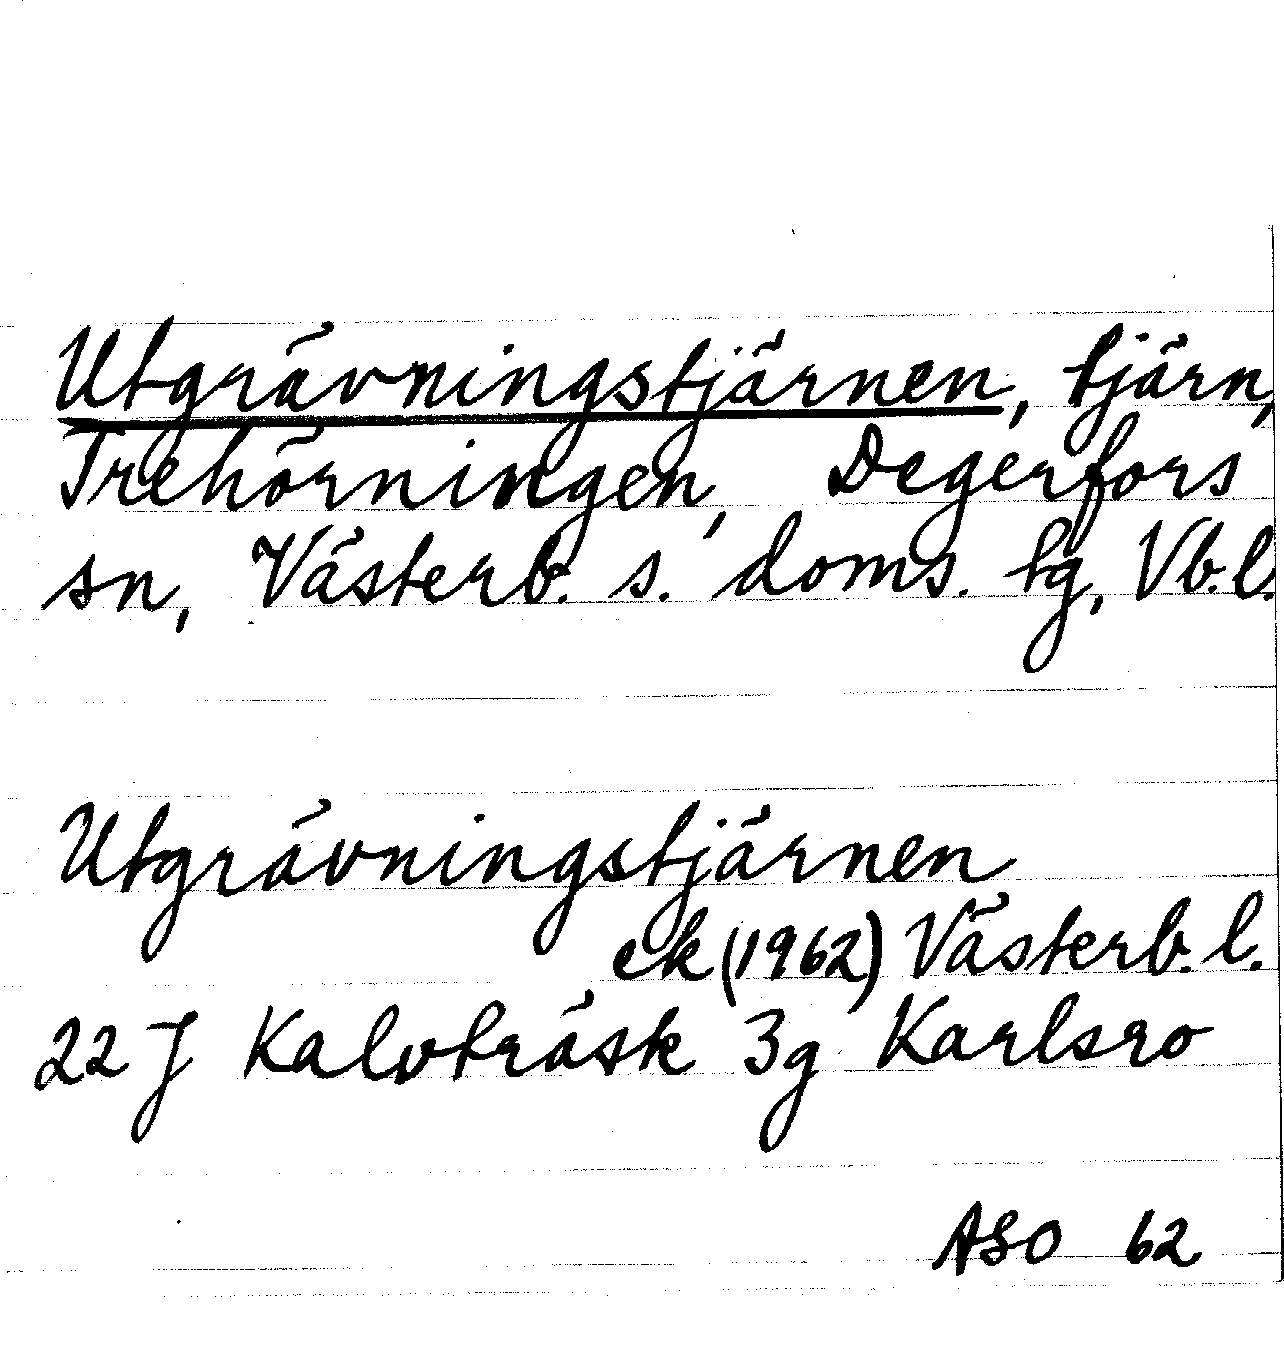 Utgrävningstjärnen, tjärn,
Trehörningen, Degerfors
sn, Västerb. s. doms. tg, Vb.l.
Utgrävningstjärnen
ek (1962) Västerb. l.
22 J Kalvträsk 3g Karlsro
ASO 62